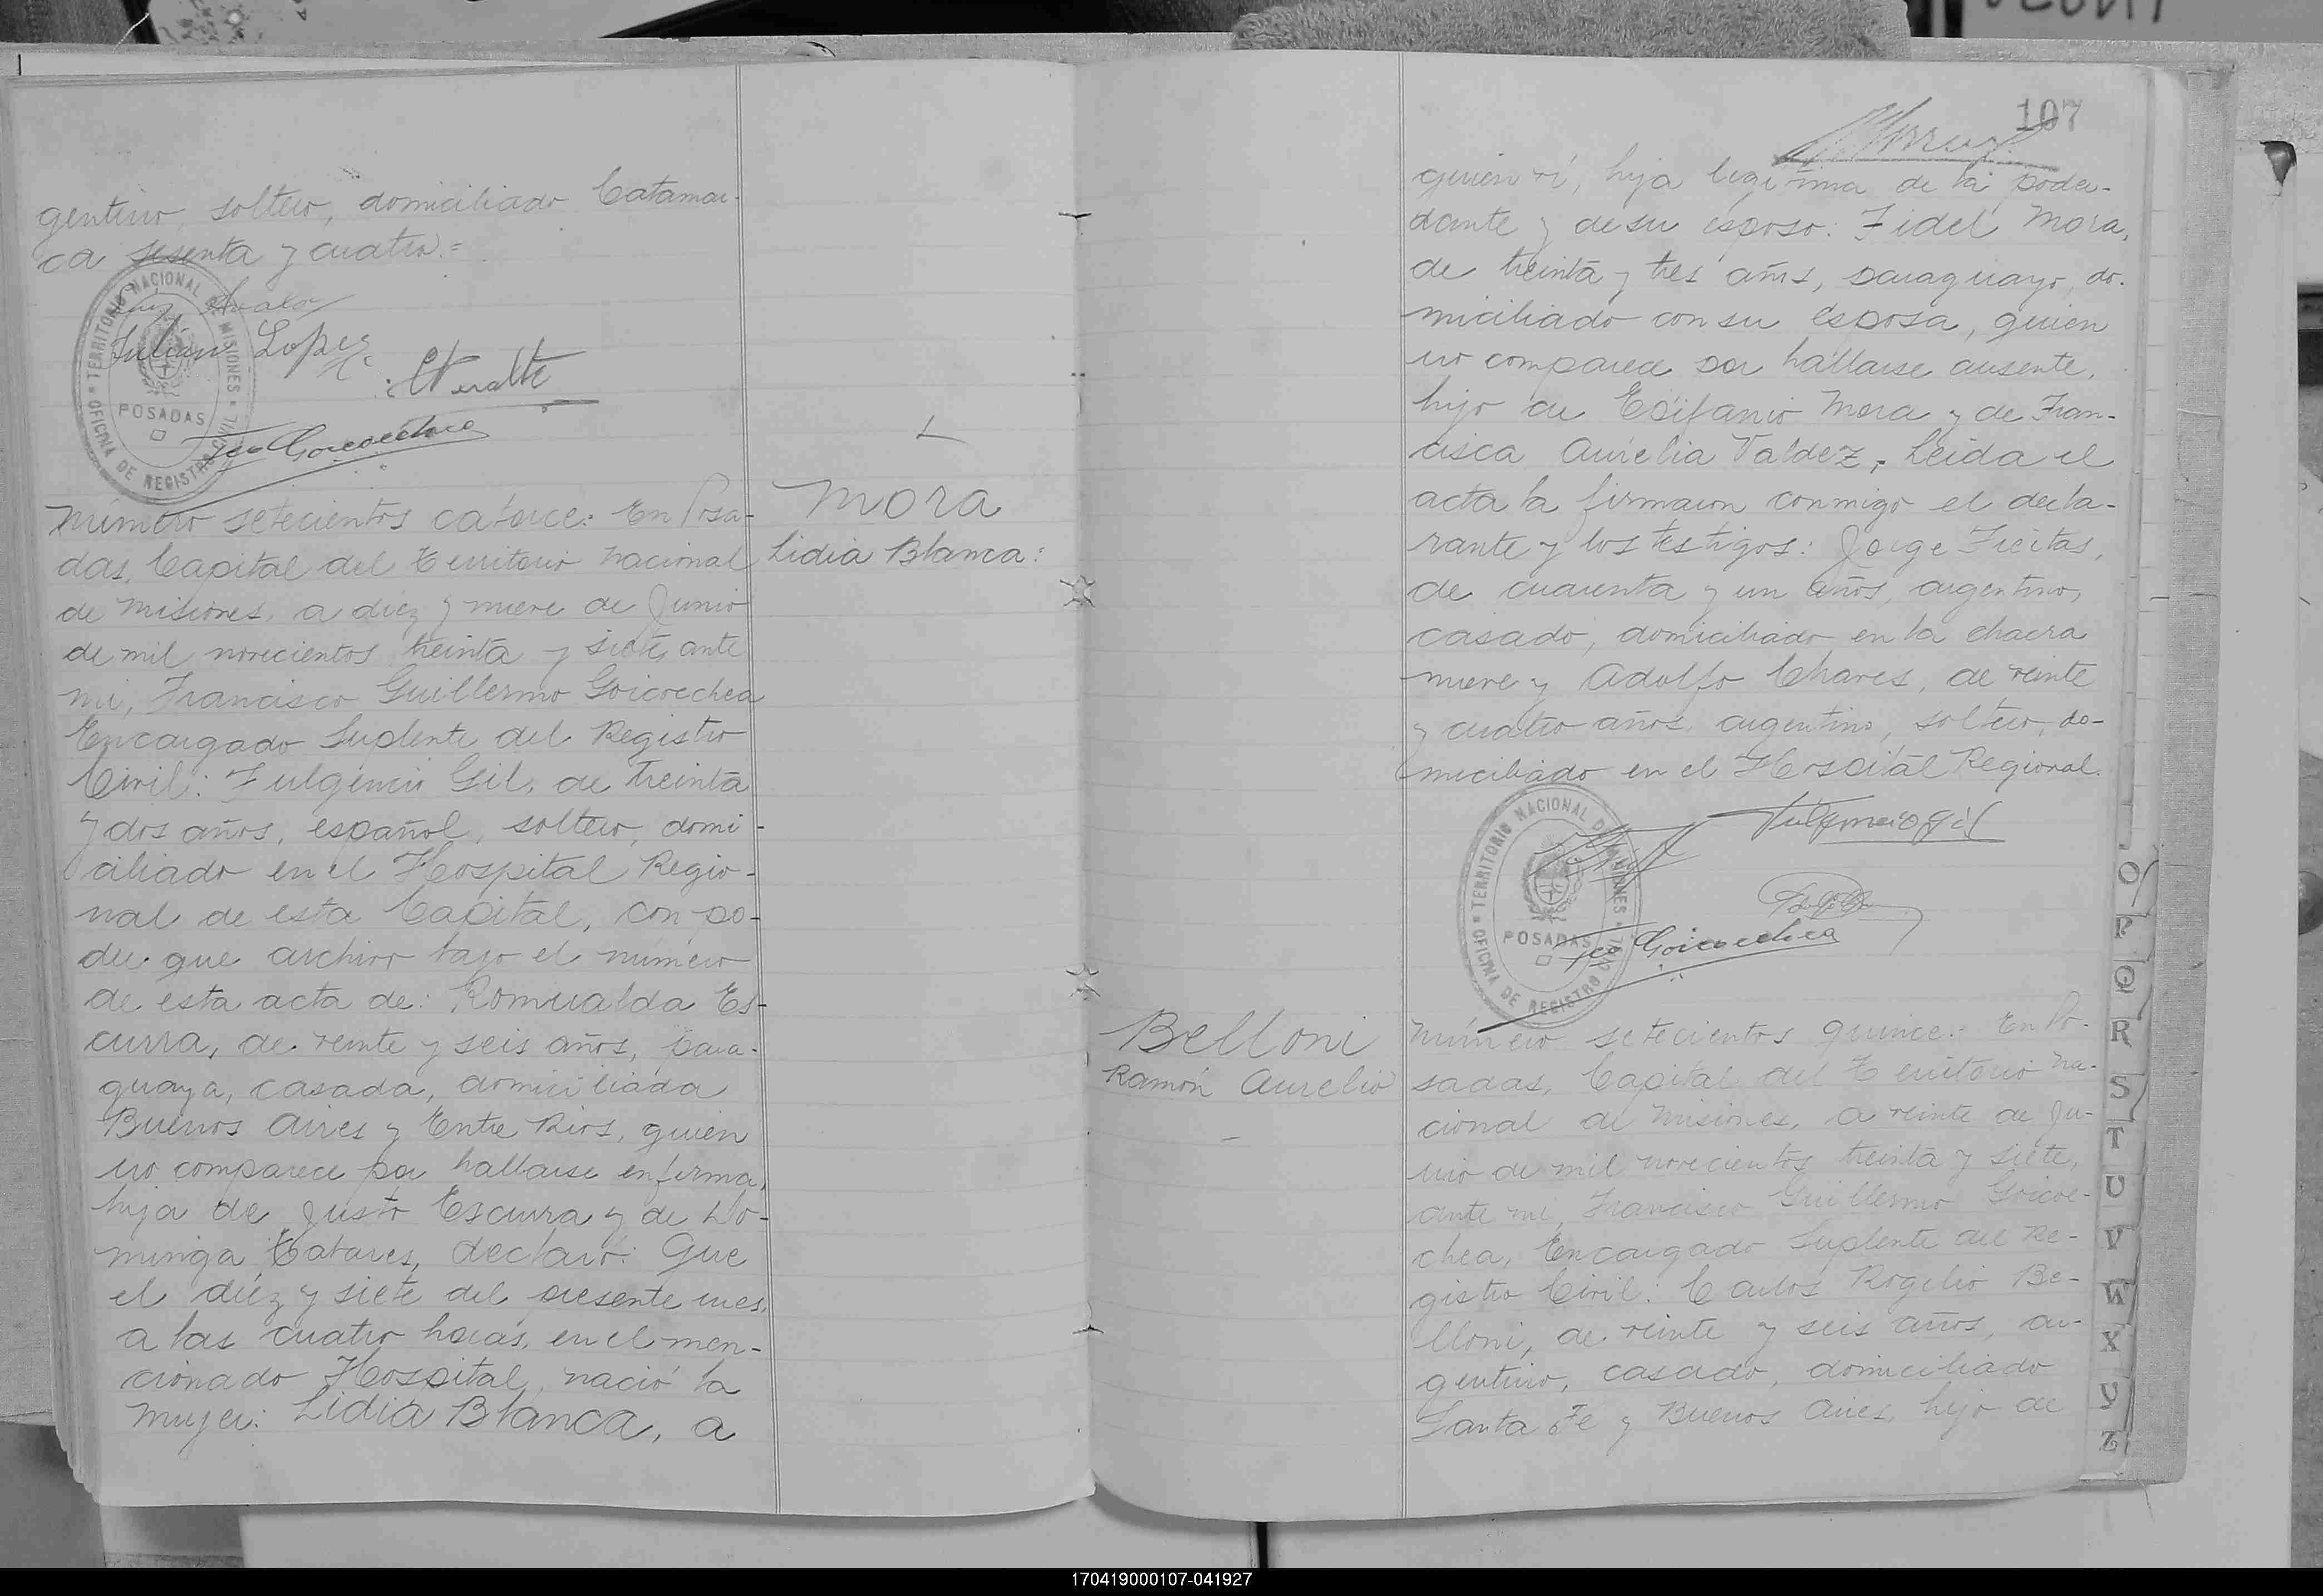 gentino, soltero, domiciliado Catamar-
ca sesenta y cuatro.=
Julian Lopez
Fco Goicoechea
TERRITORIO NACIONAL DE MISIONES
POSADAS
OFICINA DE REGISTRO CIVIL
Mora
Lidia Blanca:
Número setecientos catorce: En Posa-
das, Capital del Territorio Nacional
de Misiones, a diez y nueve de Junio
de mil novecientos treinta y siete, ante
mi, Francisco Guillermo Goicoechea
Encargado Suplente del Registro
Civil: Fulgencio Gil, de treinta
y dos años, español, soltero, domi-
ciliado en el Hospital Regio-
nal de esta Capital, con po-
der que archivo bajo el número
de esta acta de: Romualda Es-
curra, de veinte y seis años, para-
guaya, casada, domiciliada
Buenos Aires y Entre Rios, quien
no comparece por hallarse enferma,
hija de Justo Escurra y de Do-
minga Catares, declaró: Que
el diez y siete del presente mes,
a las cuatro horas, en el men-
cionado Hospital, nació la
mujer: Lidia Blanca, a
107
quien vi, hija legitima de la poder-
dante y de su esposo: Fidel Mora,
de treinta y tres años, paraguayo, do-
miciliado con su esposa, quien
no comparece por hallarse ausente,
hijo de Epifanio Mora y de Fran-
cisca Aurelia Valdez,- Leida el
acta la firmaron conmigo el decla-
rante y los testigos: Jorge Freitas,
de cuarenta y un años, argentino,
casado, domiciliado en la chacra
nueve y Adolfo Chaves, de veinte
y cuatro años, argentino, soltero, do-
miciliado en el Hospital Regional.
Fulgencio Gil
Fco Goicoechea
TERRITORIO NACIONAL DE MISIONES
POSADAS
OFICINA DE REGISTRO CIVIL
Belloni
Ramón Aurelio
Número setecientos quince: En Po-
sadas, Capital del Territorio Na-
cional de Misiones, a veinte de Ju-
nio de mil novecientos treinta y siete,
ante mi, Francisco Guillermo Goicoe-
chea, Encargado Suplente del Re-
gistro Civil: Carlos Rogelio Be-
lloni, de veinte y seis años, ar-
gentino, casado, domiciliado
Santa Fe y Buenos Aires, hijo de
O
P
Q
R
S
T
U
V
W
X
Y
Z
170419000107-041927